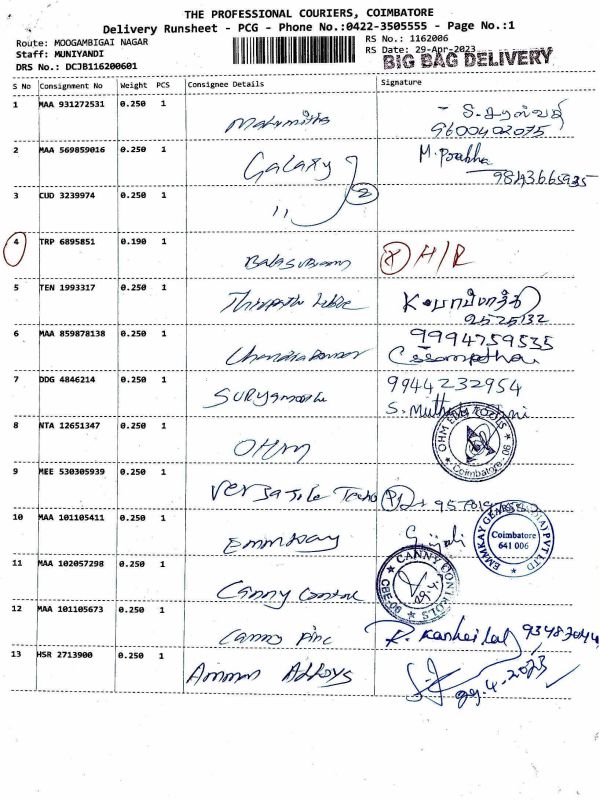 THE PROFESSIONAL COURIERS, COIMBATORE
Delivery Runsheet - PCG - Phone No.:0422-3505555 - Page No.:1
Route: MOOGAMBIGAI NAGAR
Staff: MUNIYANDI
DRS No.: DCJB116200601
RS No.: 1162006
RS Date: 29-Apr-2023
BIG BAG DELIVERY
S No Consignment No Weight PCS Consignee Details Signature
1 MAA 931272531 0.250 1
9600402075
2 MAA 569859016 0.250 1 Galaxy M. Prabha
9843665935
3 CUD 3239974 0.250 1 " 2
4 TRP 6895851 0.190 1 H/R
5 TEN 1993317 0.250 1
6 MAA 859878138 0.250 1 9994759535
7 DDG 4846214 0.250 1 9944232954
8 NTA 12651347 0.250 1 OHM
Coimbatore
9 MEE 530305939 0.250 1 Versatile
10 MAA 101105411 0.250 1 Emmkay
Coimbatore
641 006
11 MAA 102057298 0.250 1 Canny Control
CANNY CONTROLS
12 MAA 101105673 0.250 1 Canny
13 HSR 2713900 0.250 1 Amman Alloys
29.4.2023